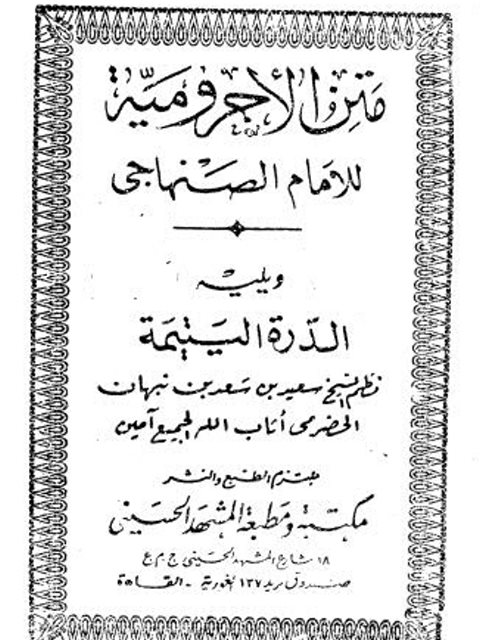 متن الأجرومية
للإمام الصنهاجى
ويليه
الدرة اليتيمة
نظم الشيخ سعيد بن سعد بن نبهان
الحضرمى أثاب الله الجميع آمين
ملتزم الطبع والنشر
مكتبة ومطبعة المشهد الحسينى
١٨ شارع المشهد الحسينى ج.م.ع
صندوق بريد ١٣٧ الغورية - القاهرة